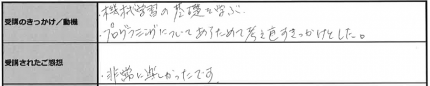 受講のきっかけ／動機
・機械学習の基礎を学ぶ.
・プログラミングについてあらためて考え直すきっかけとした。
受講されたご感想
・非常に楽しかったです